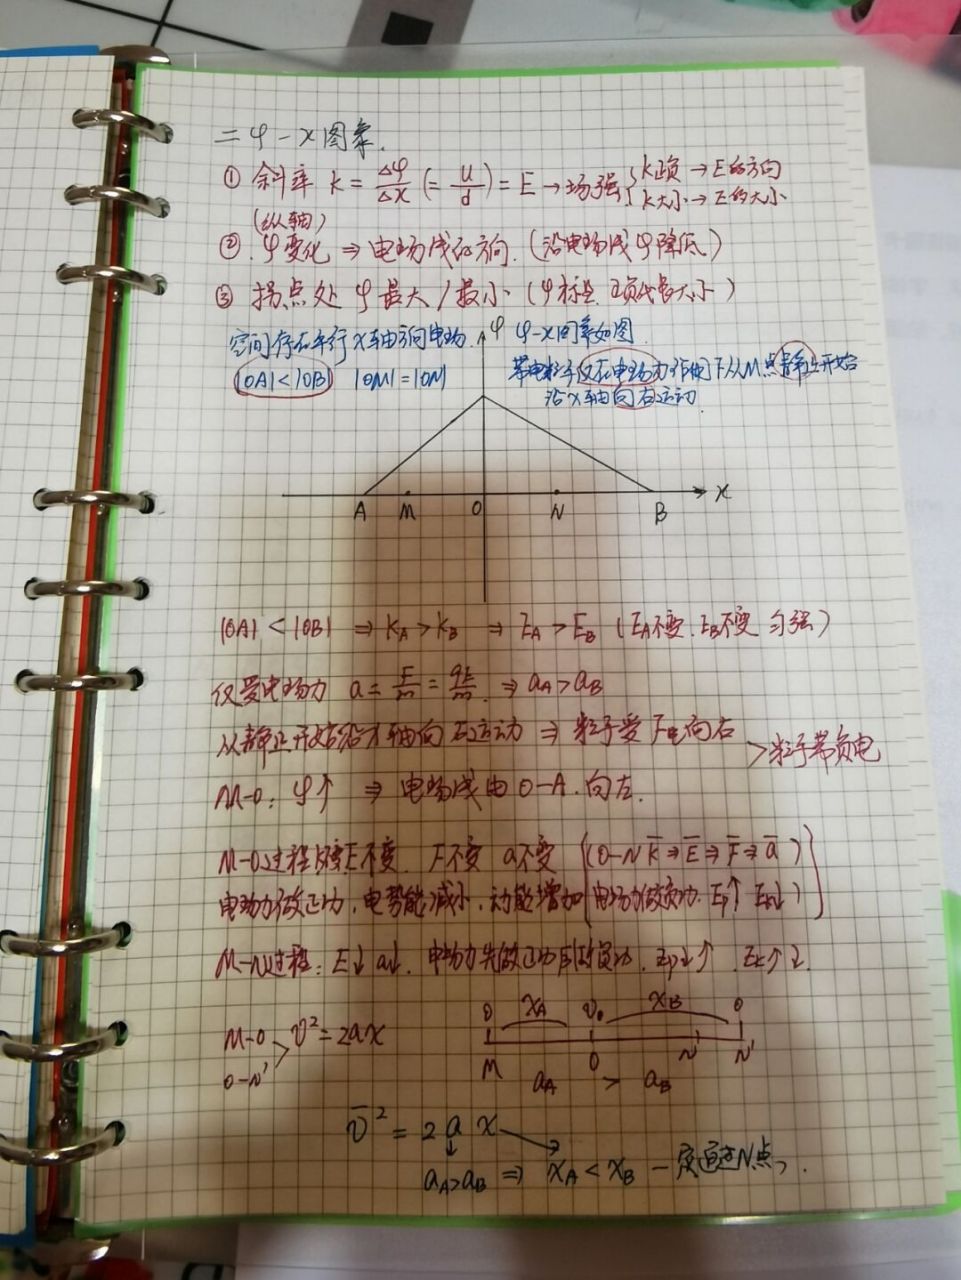 二 φ-x图象.
① 斜率 k = Δφ/Δx (= u/d) = E → 场强 { k正负 → E的方向
k大小 → E的大小
(纵轴)
② φ变化 ⇒ 电场线的方向. (沿电场线φ降低)
③ 拐点处 φ最大/最小 (φ标量. 正负代表大小)
空间存在平行x轴方向电场. φ φ-x图象如图.
|OA|<|OB| |OM|=|ON| 带电粒子仅在电场力作用下从M点静止开始
沿x轴向右运动.
A M O N B x
|OA| < |OB| ⇒ kA > kB ⇒ EA > EB (EA不变. EB不变 匀强)
仅受电场力 a = F/m = qE/m. ⇒ aA > aB
从静止开始沿x轴向右运动 ⇒ 粒子受F电向右
> 粒子带负电
M-O: φ↑ ⇒ 电场线由O-A. 向左.
M-O过程 场强E不变. F不变 a不变 (O-N k̅⇒E̅⇒F̅⇒a̅)
电场力做正功. 电势能减小. 动能增加 (电场力做负功. Ep↑ Ek↓)
M-N过程: E↓ a↓. 电场力先做正功后做负功. Ep↓↑. Ek↑↓.
0 xA v₀ xB 0
M-O
O-N' > v² = 2ax
M O N N'
aA > aB
v̅² = 2 a x
aA>aB ⇒ xA < xB 一定通过N点.